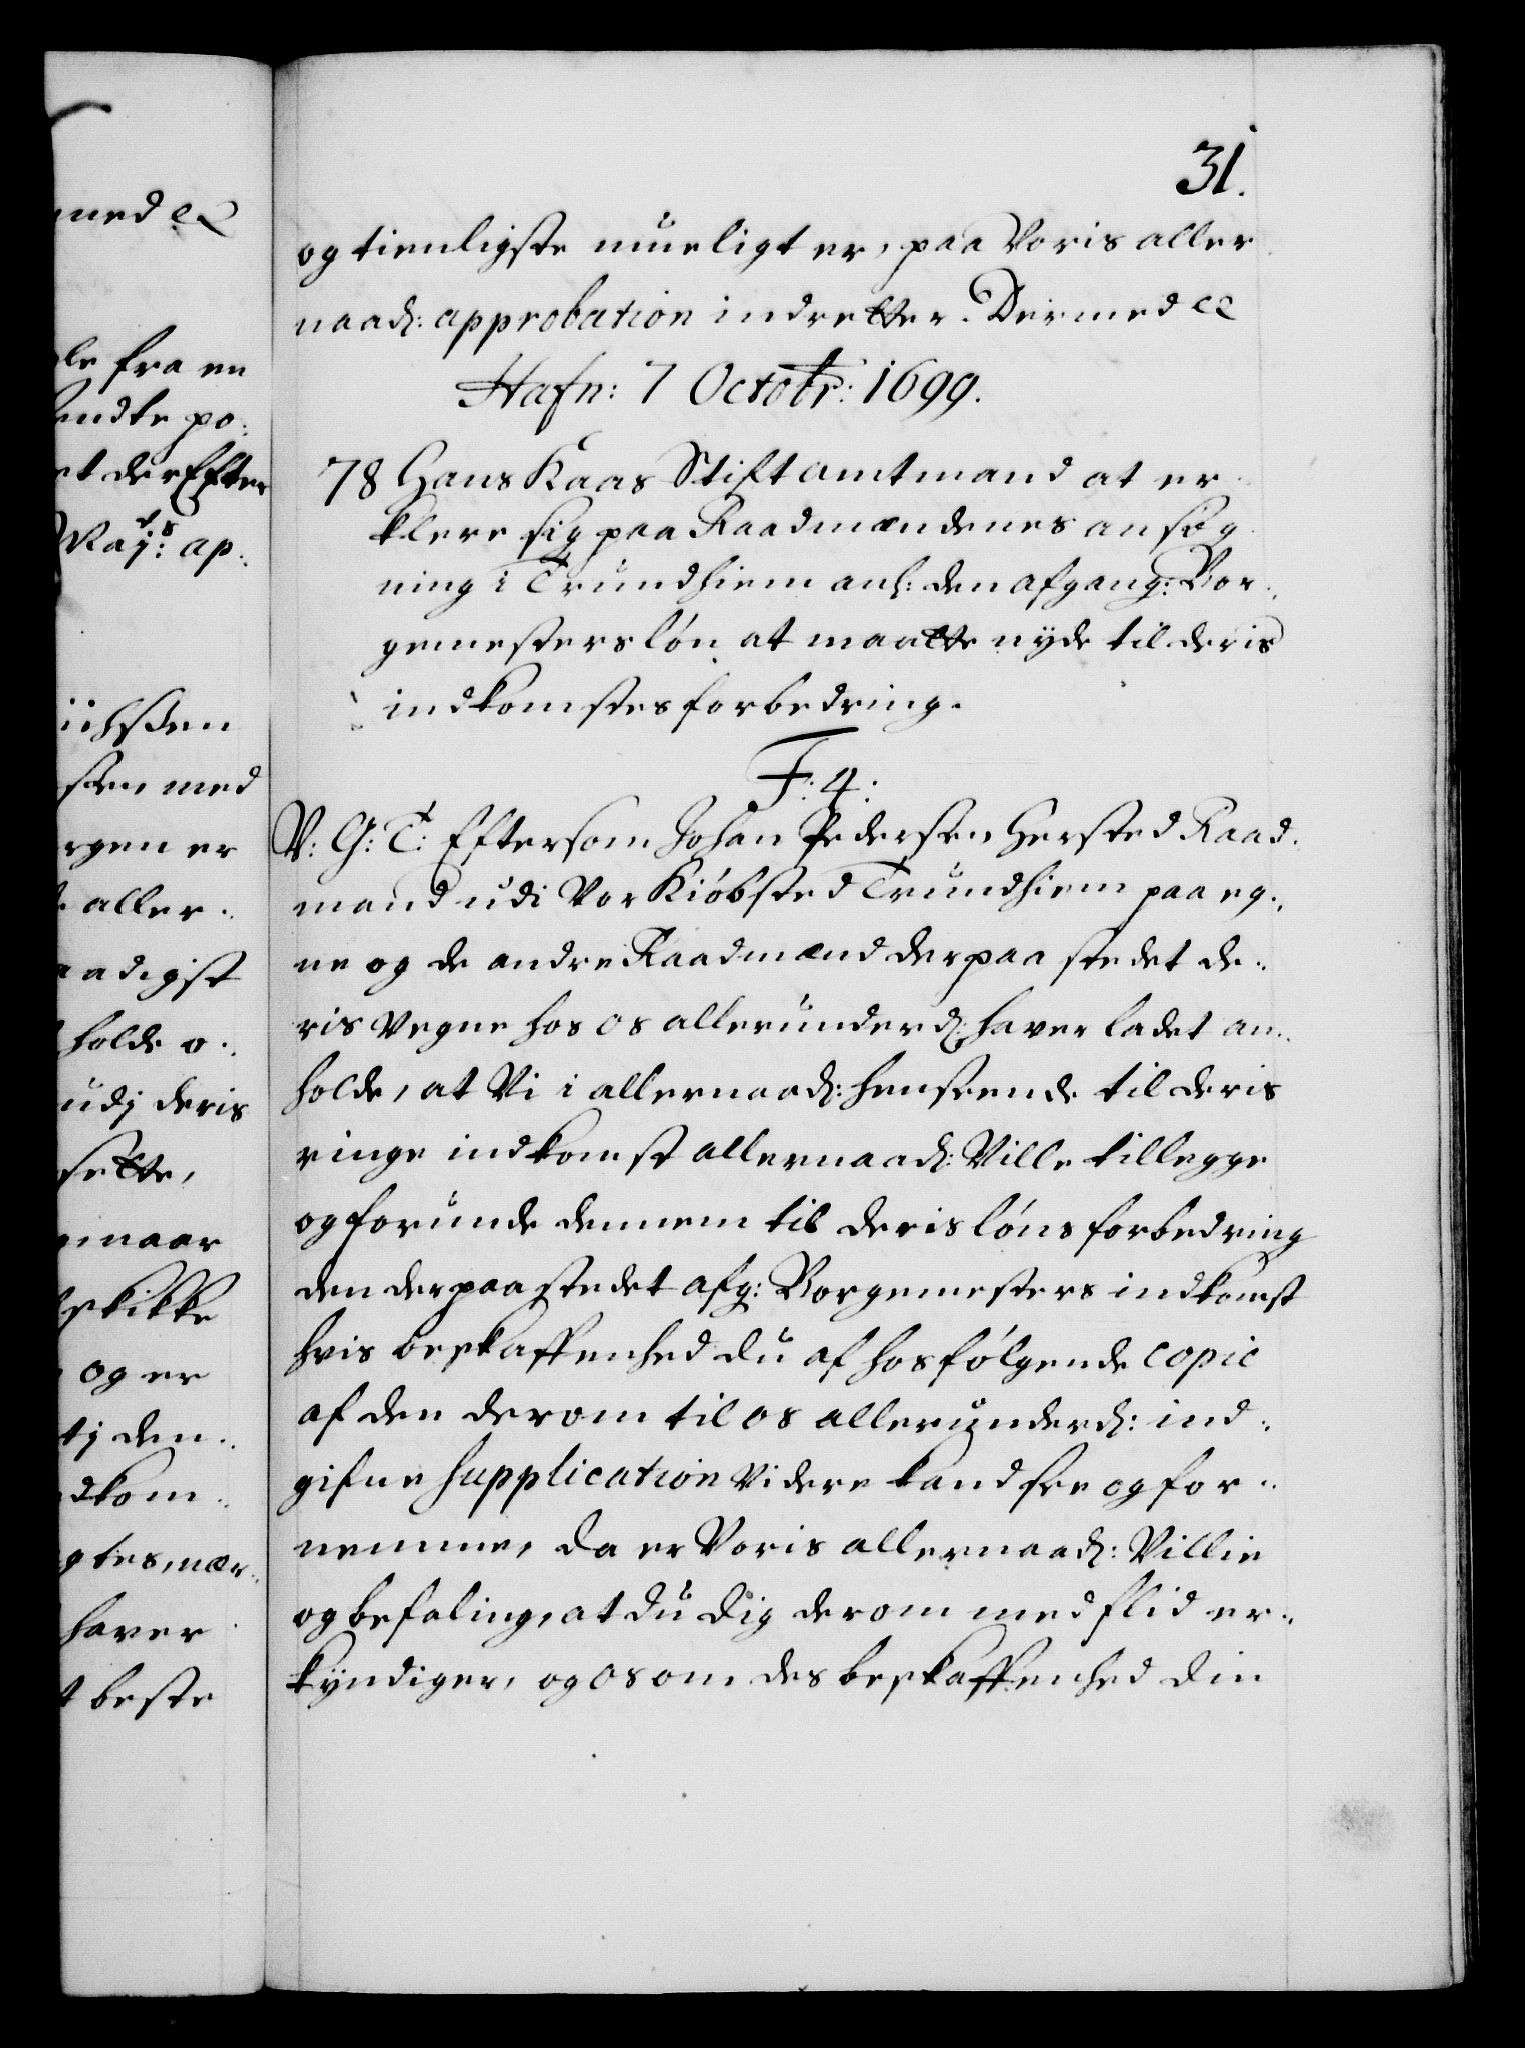 31.
og tienligste mueligt er, paa Voris aller
naad: approbation indretter. Dermed etc
Hafn: 7 Octobr: 1699.
78 Hans Kaas Stiftamtmand at er
klere sig paa Raadmændenes ansøg
ning i Trundhiem anl: den afgang: Bor-
gemesters løn at maatte nyde til deris
indkomstes forbedring.
F: 4:
V: G: T: Eftersom Johan Pedersen Hersted Raad-
mand udi Vor Kiøbsted Trundhiem paa eg-
ne og de andre Raadmænd der paa stedet de-
ris vegne hos os allerunderd: haver ladet an-
holde, at Vi i allernaad: henseende til deris
ringe indkomst allernaad: Ville tillegge
og forunde dennem til deris løns forbedring
den der paa stedet afg: Borgemesters indkomst
hvis beskaffenhed du af hosfølgende copie
af den derom til os allerunderd: ind-
gifne supplication videre kand see og for-
nemme, da er Voris allernaad: Villie
og befaling, at du dig derom med flid er-
kyndiger, og os om des beskaffenhed din
med etc
le fra en
endte po-
et der Efter
Mayts: ap-
sen med
rgen er
aller-
aadigst
holde o-
udj deris
sette,
naar
skikke
og er
tj den-
dkom-
gtes, nær-
haver
t beste